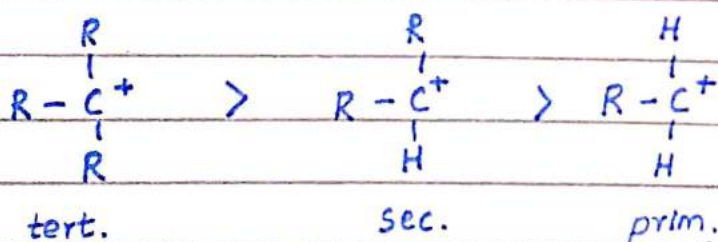 R R H
R - C + > R - C + > R - C +
R H H
tert. sec. prim.